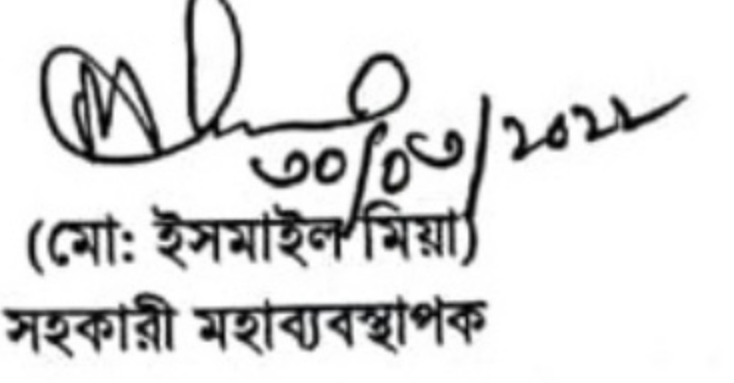 ৩০/০৩/২০২২
(মো: ইসমাইল মিয়া)
সহকারী মহাব্যবস্থাপক